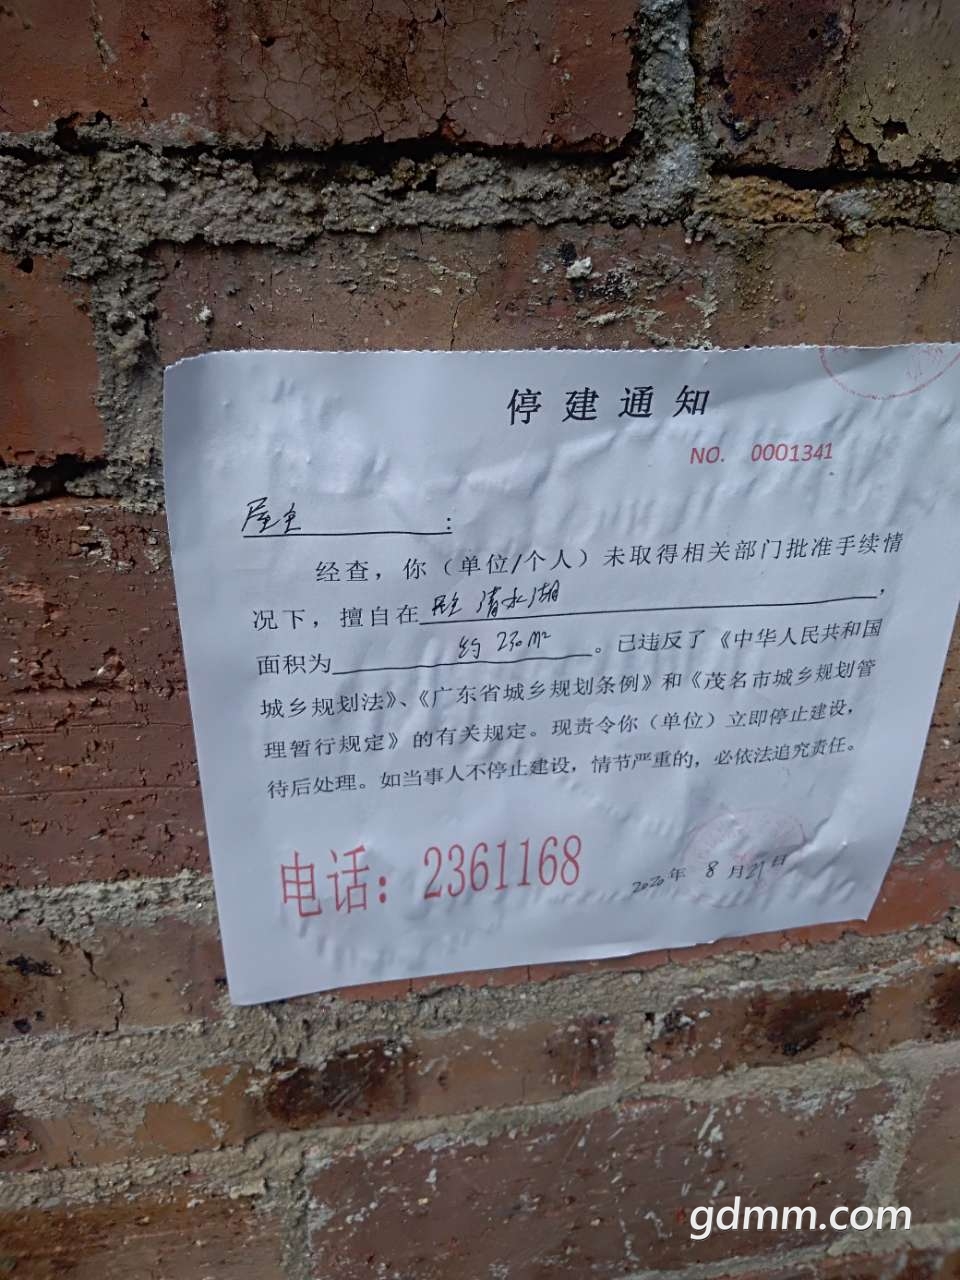 停建通知
NO. 0001341
屋主:
经查，你（单位/个人）未取得相关部门批准手续情
况下，擅自在 清水湖，
面积为约230m²。已违反了《中华人民共和国
城乡规划法》、《广东省城乡规划条例》和《茂名市城乡规划管
理暂行规定》的有关规定。现责令你（单位）立即停止建设，
待后处理。如当事人不停止建设，情节严重的，必依法追究责任。
电话：2361168
2020年8月21日
gdmm.com